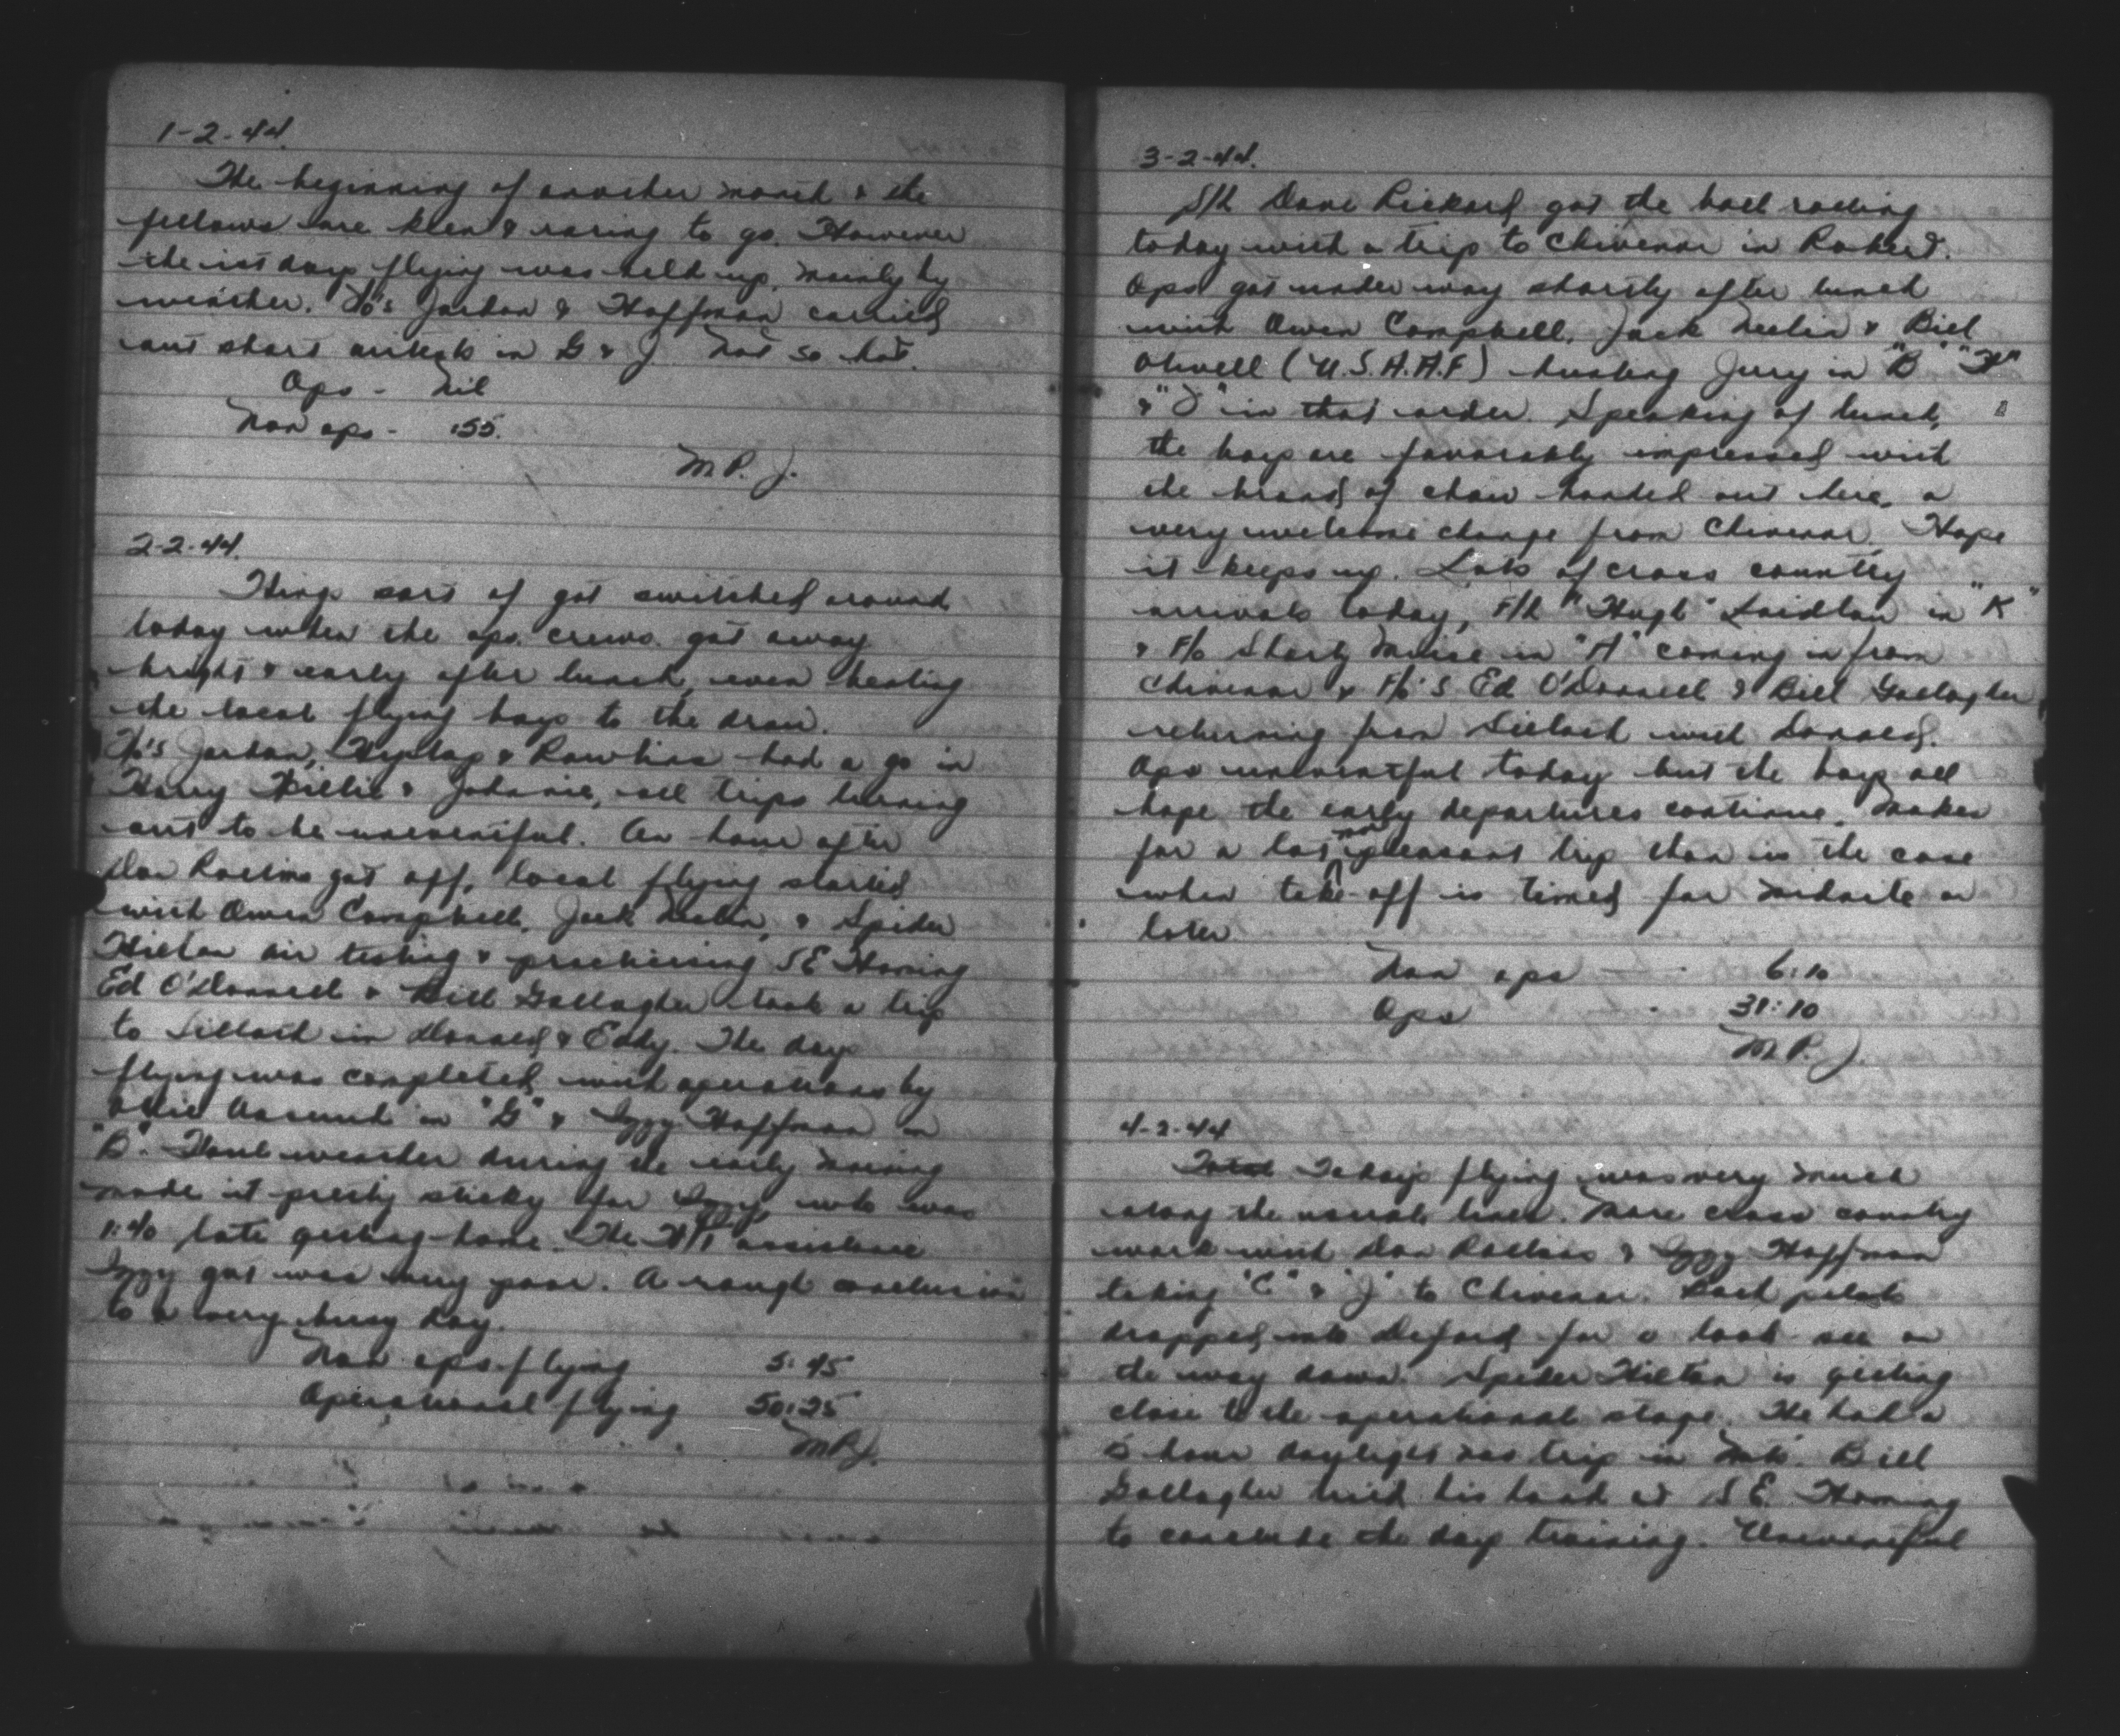 1-2-44.
The beginning of another month & the
fellows are keen & raring to go. However
the 1st days flying was held up, mainly by
weather. F/O's Jordan & Hoffman carried
out short in G & J. Not so hot.
Ops - Nil
Non ops - :55.
M.P.J.
2-2-44.
Things sort of got switched around
today when the ops. crews got away
bright & early after lunch, even beating
the local flying boys to the draw.
F/O's Jordan, & Rawlins had a go in
Harry, Willie & Johnnie, all trips turning
out to be uneventful. An hour after
Don got off, local flying started
with Owen Campbell, Jack & Spider
Hilton air testing & practicising SE Homing
Ed O'Donnell & Bill Gallagher took a trip
to Silloth in Donald & Eddy. The days
flying was completed with operations by
in "G" & Izzy Hoffman in
"B". Foul weather during the early morning
made it pretty sticky for Izzy, who was
1:40 late getting home. The assistance
Izzy got was very poor. A rough conclusion
to a very busy day.
Non ops flying 5:45
Operational flying 50:25
M.P.J.
3-2-44.
S/L Dave got the ball rolling
today with a trip to Chivenor in Robert.
Ops got under way shortly after lunch
with Owen Campbell, Jack & Bill
(U.S.A.A.F) hunting Jerry in "B"
& "J" in that order. Speaking of lunch,
the boys are favorably impressed with
the brand of chow handed out here, a
very welcome change from Chivenor. Hope
it keeps up. Lots of cross country
arrivals today, F/L "Hugh" Laidlaw in "K"
& F/O Shorty in "A" coming in from
Chivenor & F/O'S Ed O'Donnell & Bill Gallagher
returning from Silloth with Donald.
Ops uneventful today but the boys all
hope the early departures continue. Makes
for a lot more pleasant trip than is the case
when take-off is timed for midnite or
later.
Non ops - 6:10
Ops - 31:10
M.P.J.
4-2-44
Todays flying was very much
along the usual lines. More cross country
work with Don & Izzy Hoffman
taking "C" & "J" to Chivenor. Both pilots
dropped into Defford for a look see on
the way down. Spider Hilton is getting
close to the operational stage. He had a
5 hour daylight nav trip in Bill
Gallagher tried his hand at S E. Homing
to conclude the day training. Uneventful